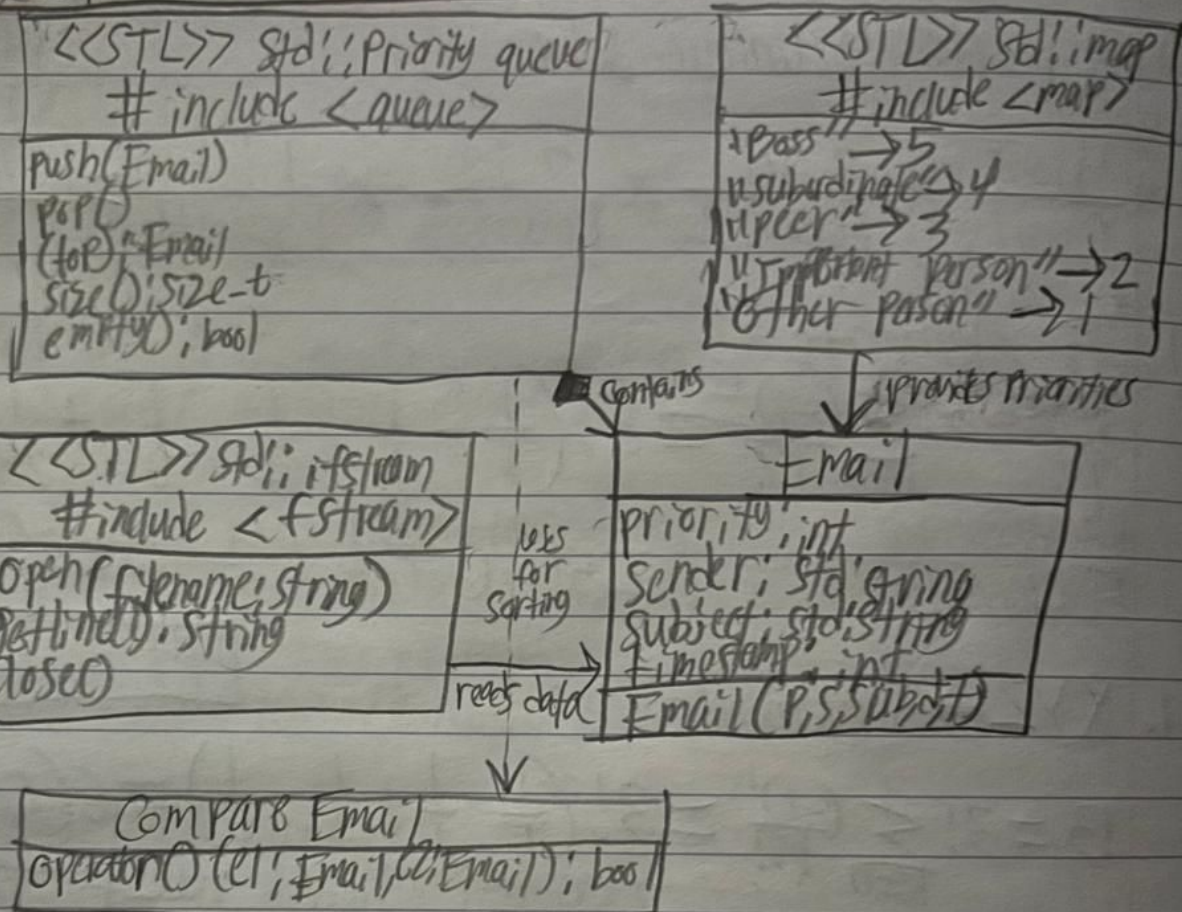 <<STL>> Std::Priority queue
#include <queue>
push(Email)
pop()
(top):Email
size():size_t
empty(): bool
<<STL>> Std::map
#include <map>
"Boss" → 5
"subordinate" → 4
"peer" → 3
"Important person" → 2
"Other person" → 1
contains
provides Priorities
<<STL>> Std::ifstream
#include <fstream>
open(filename:string)
getline(): String
close()
uses
for
sorting
reads data
Email
priority: int
Sender: Std:string
subject: std:string
timestamp: int
Email(P,S,Sub,d,t)
Compare Email
operator()(e1: Email, e2: Email): bool